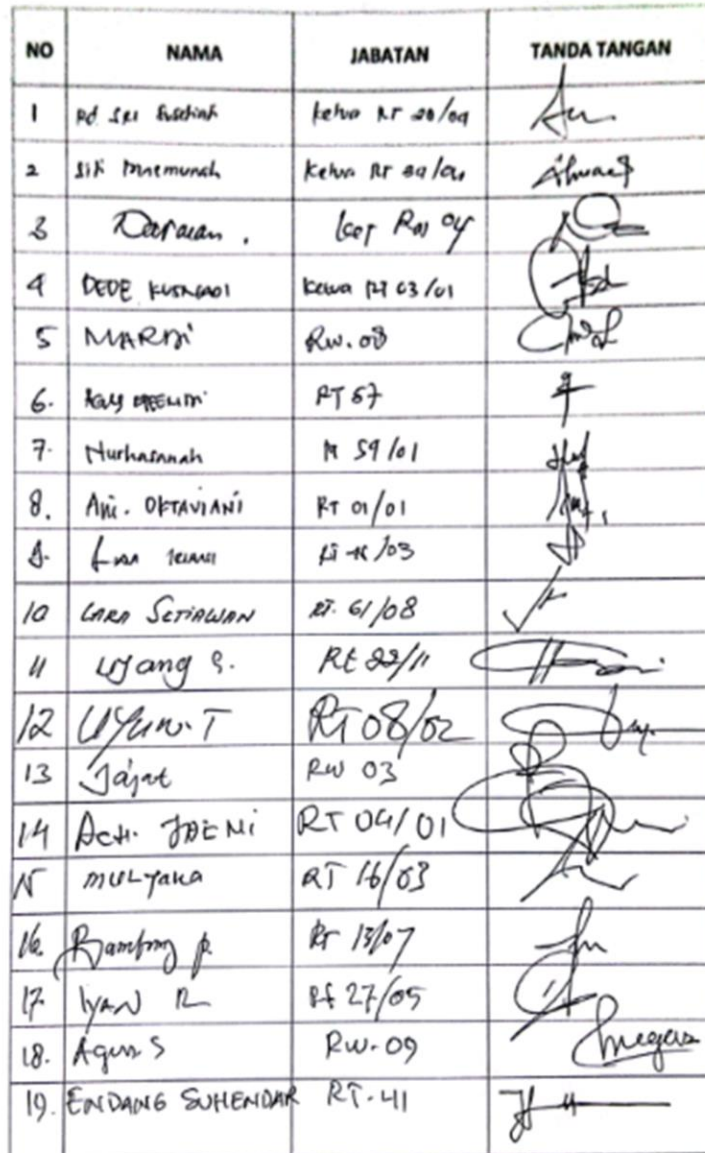 NO NAMA JABATAN TANDA TANGAN
1 Rd. SRI Ketua RT
2 Siti Maemunah Ketua RT
3 Darawan. RW 04
4 DEDE KUSNADI Ketua RT 03/01
5 MARDI RW. 08
6. RT 57
7. Nurhasanah 59/01
8. Ani. OKTAVIANI RT 01/01
9. /03
10 LARA SETIAWAN RT. 61/08
11 Ujang S. Rt 22/11
12 UYUN.T RT 08/02
13 Jajat RW 03
14 ACH. JAENI RT 04/01
15 MULYANA RT 16/03
16. Bambang P. RT 13/07
17. IYAN R RT 27/05
18. Agus S RW. 09
19. ENDANG SUHENDAR RT. 41